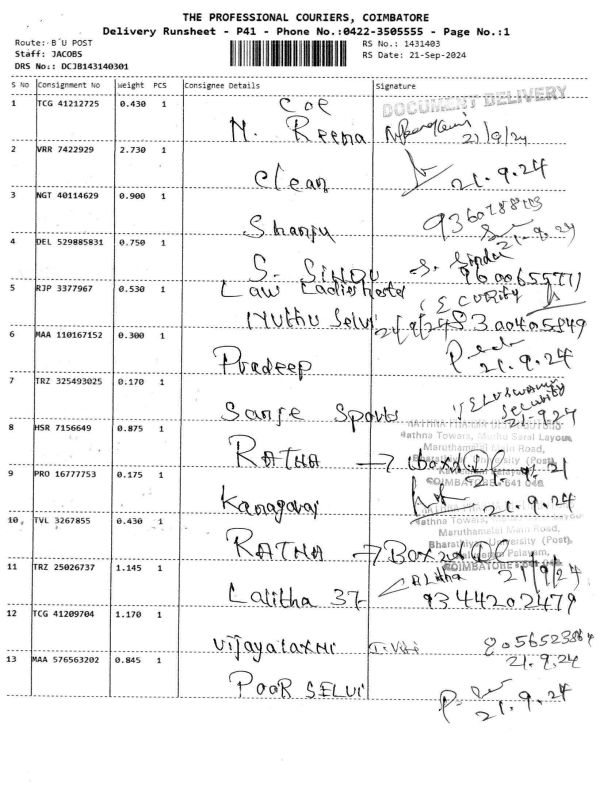 THE PROFESSIONAL COURIERS, COIMBATORE
Delivery Runsheet - P41 - Phone No.:0422-3505555 - Page No.:1
Route: B U POST
RS No.: 1431403
Staff: JACOBS
RS Date: 21-Sep-2024
DRS No.: DCJB143140301
S No Consignment No Weight PCS Consignee Details Signature
1 TCG 41212725 0.430 1 COE
DOCUMENT DELIVERY
N. Reena 21/9/24
2 VRR 7422929 2.730 1
Clean 21.9.24
3 NGT 40114629 0.900 1
Shanju 21.9.24
4 DEL 529885831 0.750 1
S. SINDU S. Sindu
5 RJP 3377967 0.530 1 Law Ladies hostel
SECURITY
Muthu Selvi
6 MAA 110167152 0.300 1
Pradeep 21.9.24
7 TRZ 325493025 0.170 1
Sanfe Sports Security
21.9.24
8 HSR 7156649 0.875 1
Rathna Towars, Muthu Saral Layout,
Maruthamalai Main Road,
RATHA
University (Post),
9 PRO 16777753 0.175 1
COIMBATORE-641 046
Kanagaraj 21.9.24
10 TVL 3267855 0.430 1
Rathna Towars,
Maruthamalai Main Road,
RATHA University (Post),
11 TRZ 25026737 1.145 1
21/9/24
Lalitha 37 9344202479
12 TCG 41209704 1.170 1
Vijayalaxmi
21.9.24
13 MAA 576563202 0.845 1
POOR SELVI
21.9.24